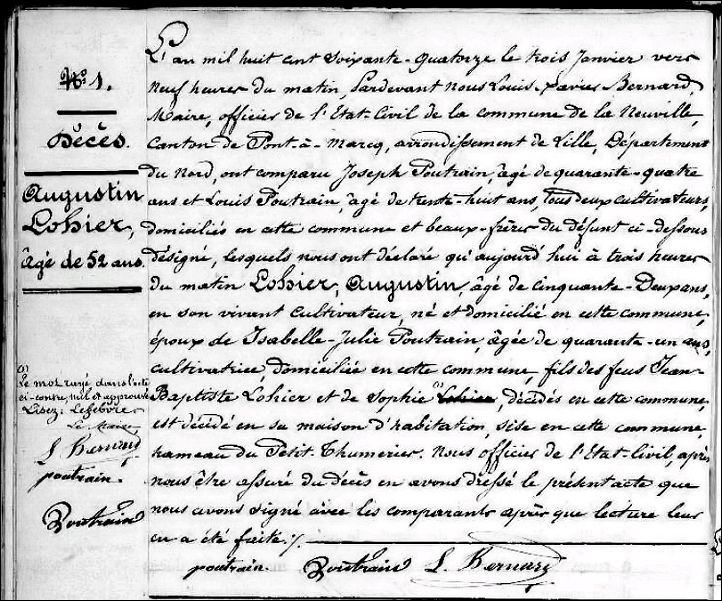 N.º 1.
Décès.
Augustin
Lohier,
âgé de 52 ans.
(1)
Le mot rayé dans l'acte
ci-contre, nul et approuvé
Lisez: Lefebvre
Le Maire
L. Bernard
poutrain.
Poutrain
L'an mil huit cent soixante-quatorze le trois Janvier vers
neuf heures du matin, Pardevant nous Louis-Xavier Bernard,
Maire, officier de l'Etat-Civil de la commune de la Neuville,
canton de Pont-à-Marcq, arrondissement de Lille, Département
du Nord, ont comparu Joseph Poutrain, âgé de quarante-quatre
ans et Louis Poutrain, âgé de trente-huit ans, tous deux cultivateurs,
domiciliés en cette commune et beaux-frères du défunt ci-dessous
désigné, lesquels nous ont déclaré qu'aujourd'hui à trois heures
du matin Lohier, Augustin, âgé de cinquante-deux ans,
en son vivant cultivateur, né et domicilié en cette commune,
époux de Isabelle-Julie Poutrain, âgée de quarante-un ans,
cultivatrice domiciliée en cette commune, fils des feus Jean-
Baptiste Lohier et de Sophie (1) Lohier, décédés en cette commune,
est décédé en sa maison d'habitation, sise en cette commune,
hameau du Petit-Thumeries. Nous officier de l'Etat-Civil, après
nous être assuré du décès en avons dressé le présent acte que
nous avons signé avec les comparants après que lecture leur
en a été faite./.
poutrain. Poutrain L. Bernard